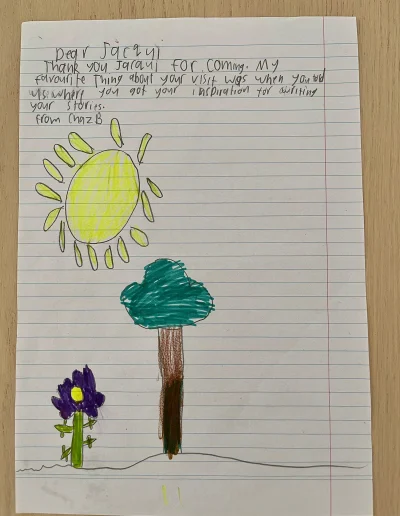 Dear Jacqui
Thank you Jacqui for coming. My
favourite thing about your visit was when you told
us where you got your inspiration for writing
your stories.
from Chaz B